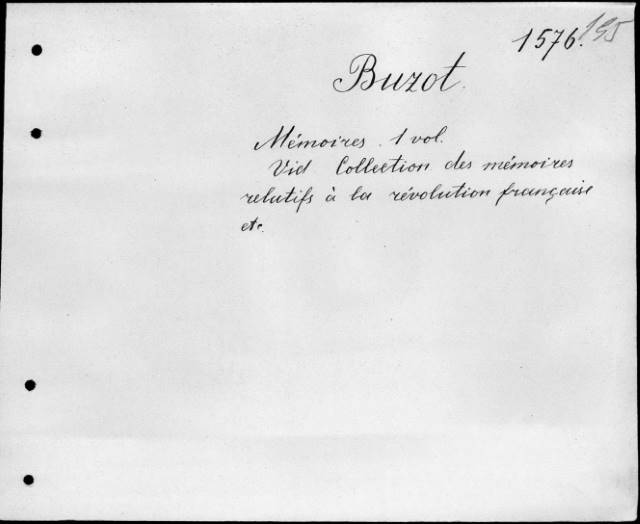 1576. 195
Buzot.
Mémoires. 1 vol.
Vid Collection des mémoires
relatifs à la révolution française
etc.